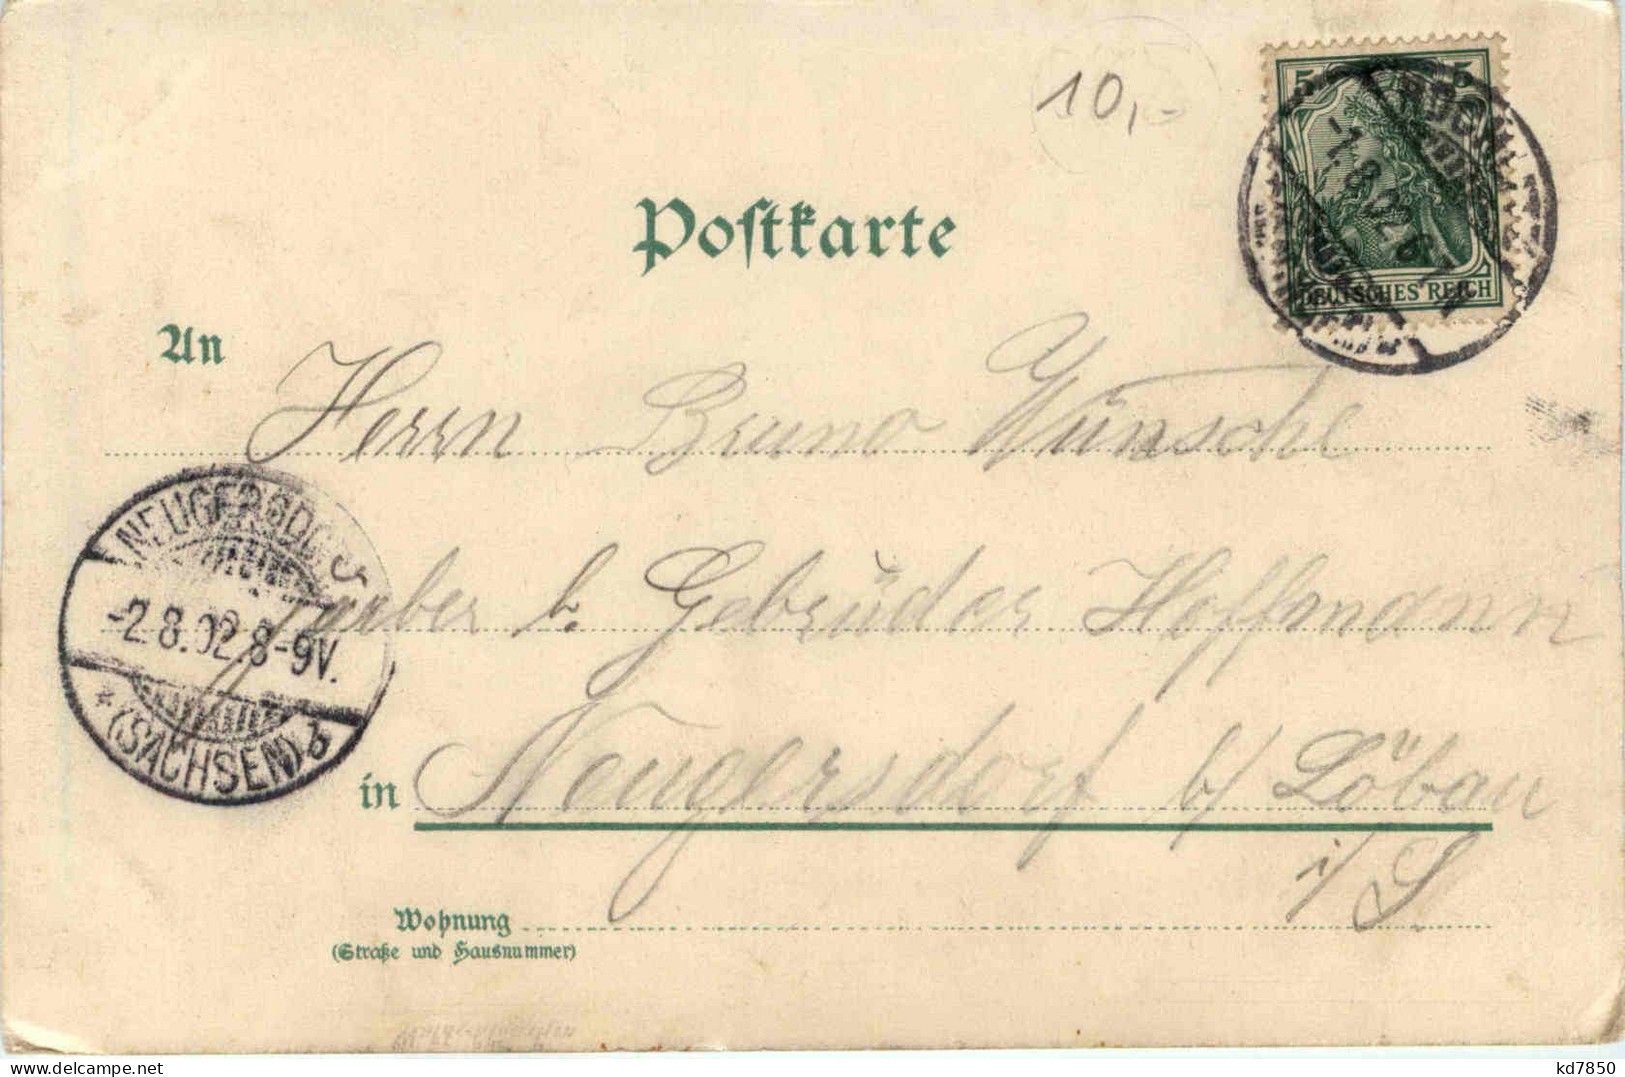 10,-
5 5
-1.8.02.6-7
DEUTSCHES REICH
Postkarte
An Herrn Bruno Wünsche
NEUGERSDORF
-2.8.02.8-9V.
*(SACHSEN)d
Färber b. Gebrüder Hoffmann
in Neugersdorf b/ Löbau
i/S
Wohnung
(Straße und Hausnummer)
kd7850